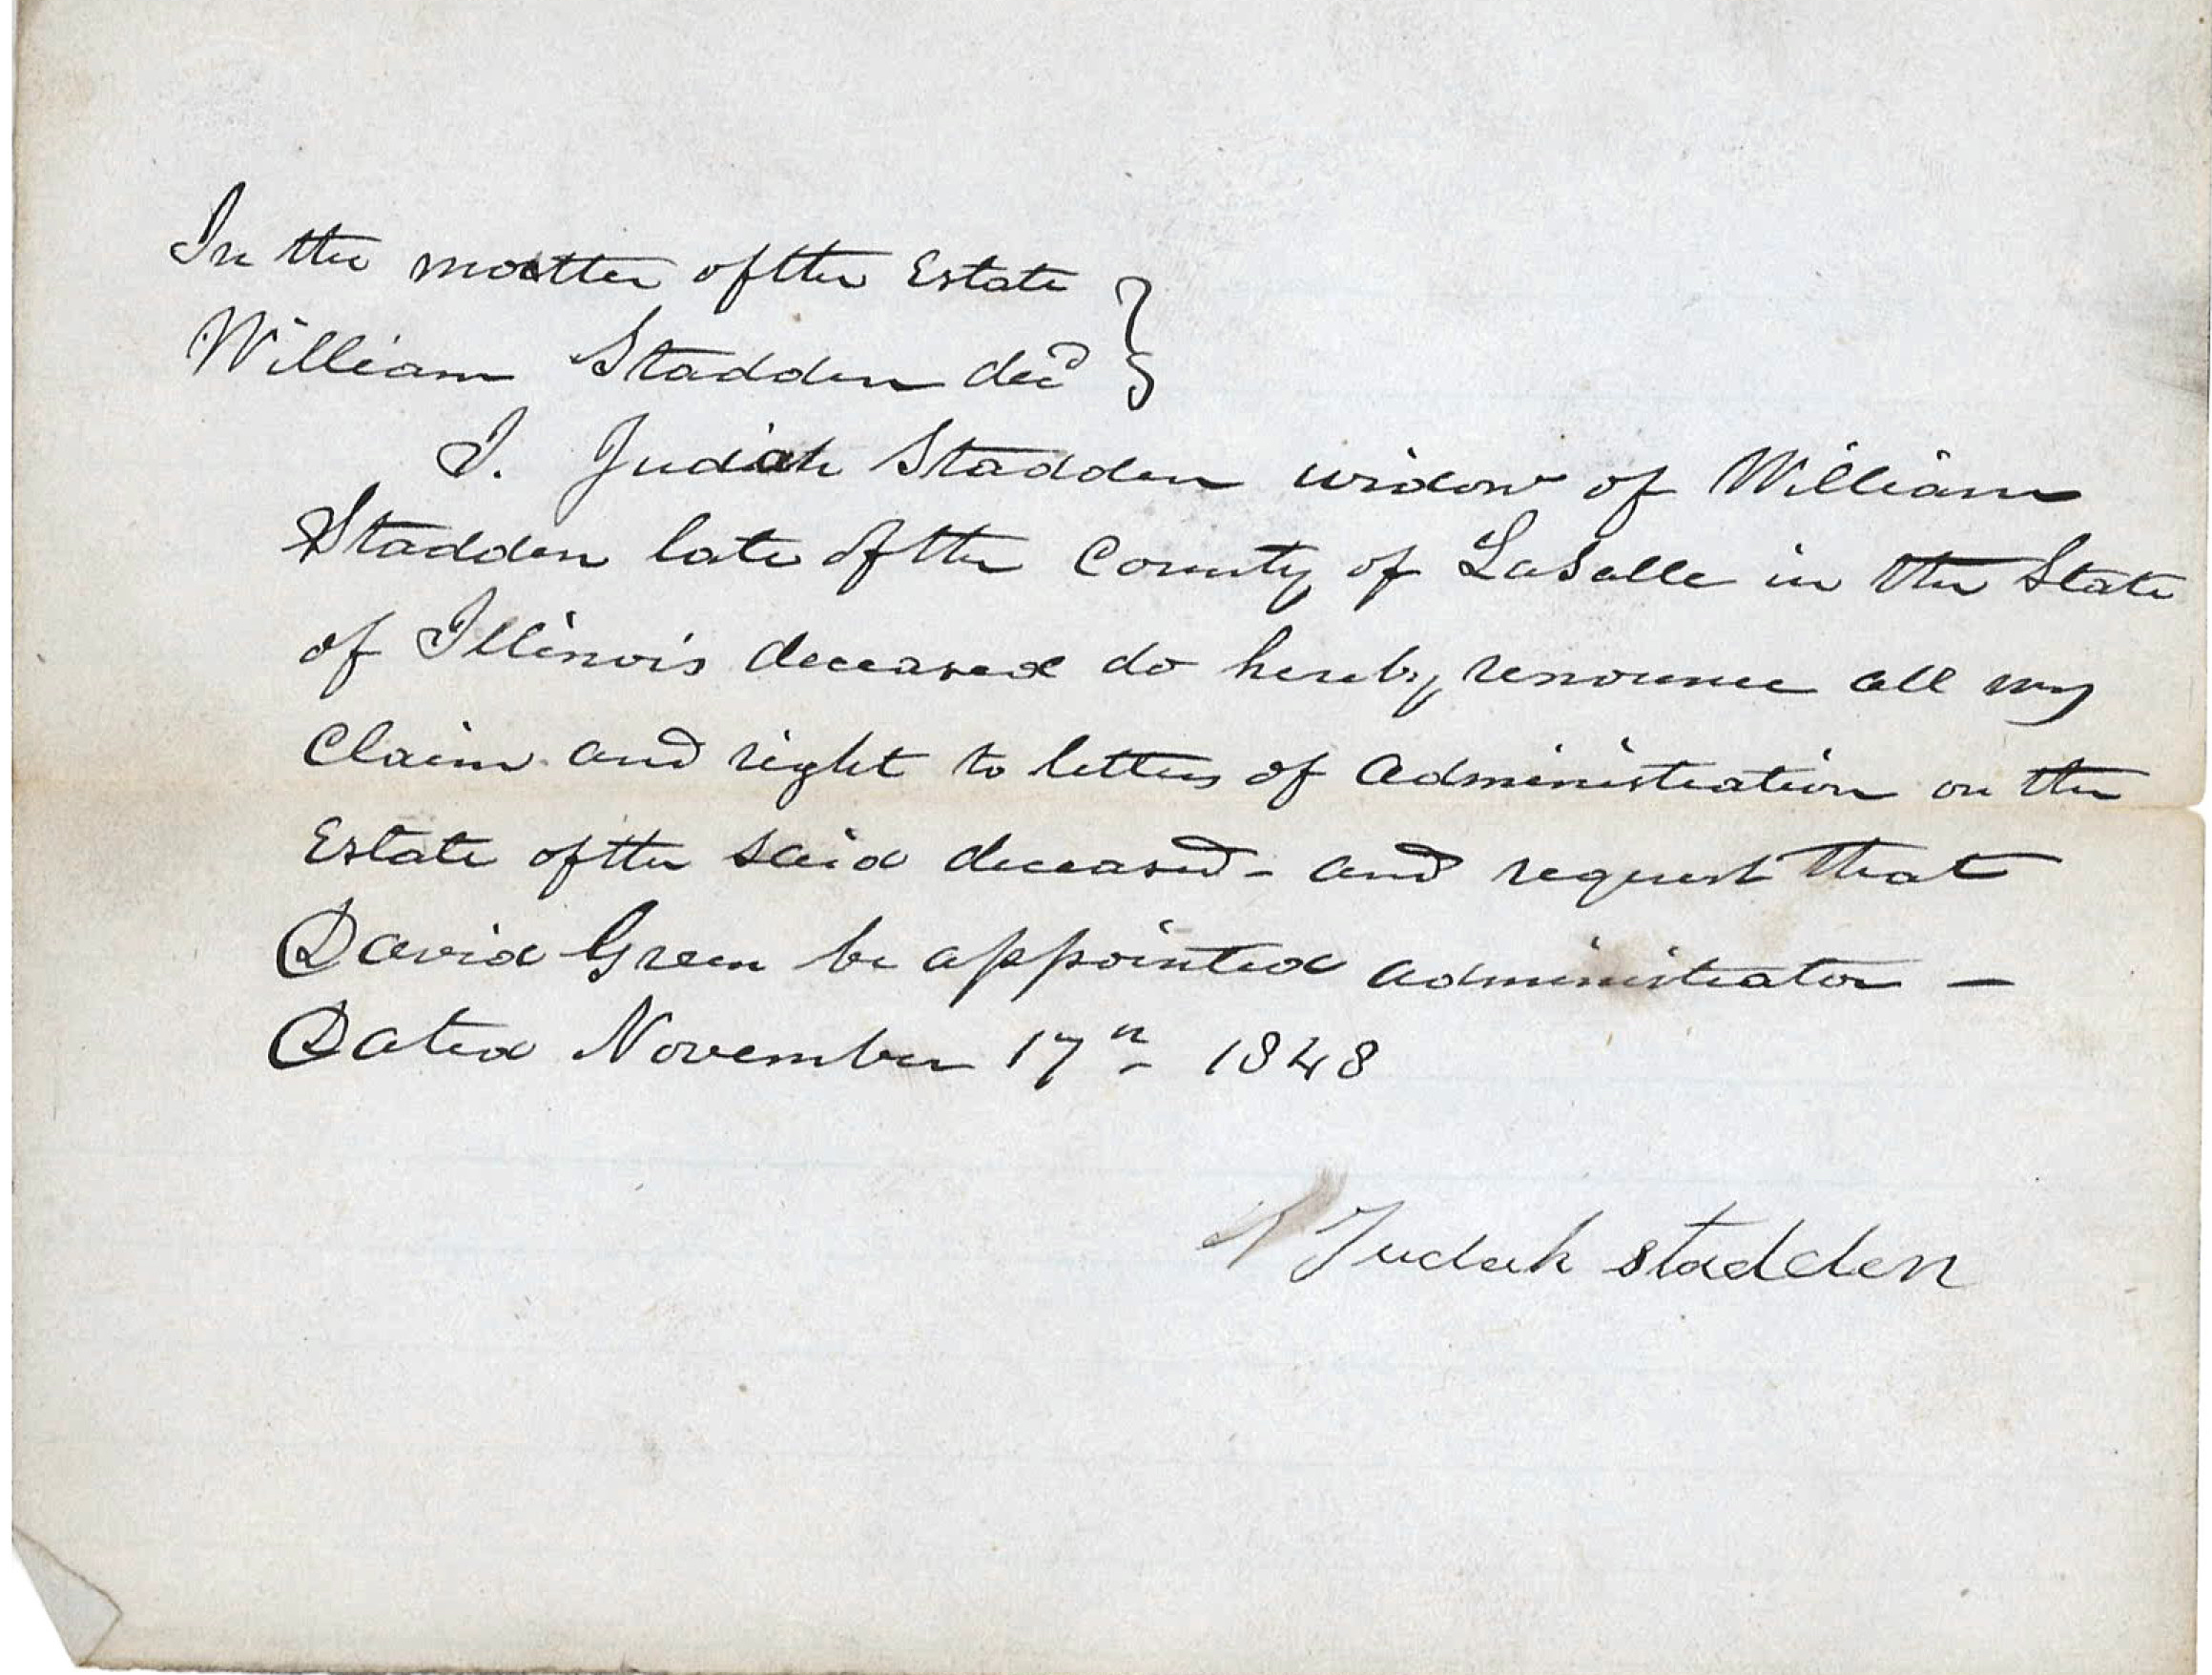 In the matter of the Estate }
William Stadden decd }
I. Judah Stadden widow of William
Stadden late of the County of LaSalle in the State
of Illinois deceased do hereby renounce all my
Claim and right to letters of administration on the
Estate of the said deceased - and request that
David Green be appointed administrator —
Dated November 17th 1848
Judah stadden